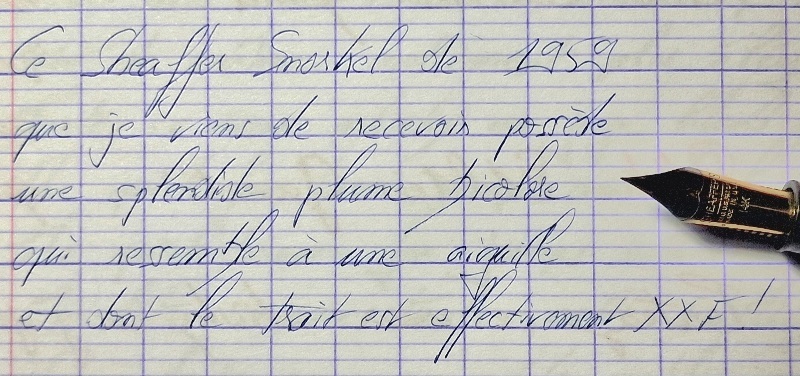 Ce Sheaffer Snorkel de 1959
que je viens de recevoir possède
une splendide plume bicolore
qui ressemble à une aiguille
et dont le trait est effectivement XXF !
SHEAFFER'S
MADE IN U.S.A.
14K